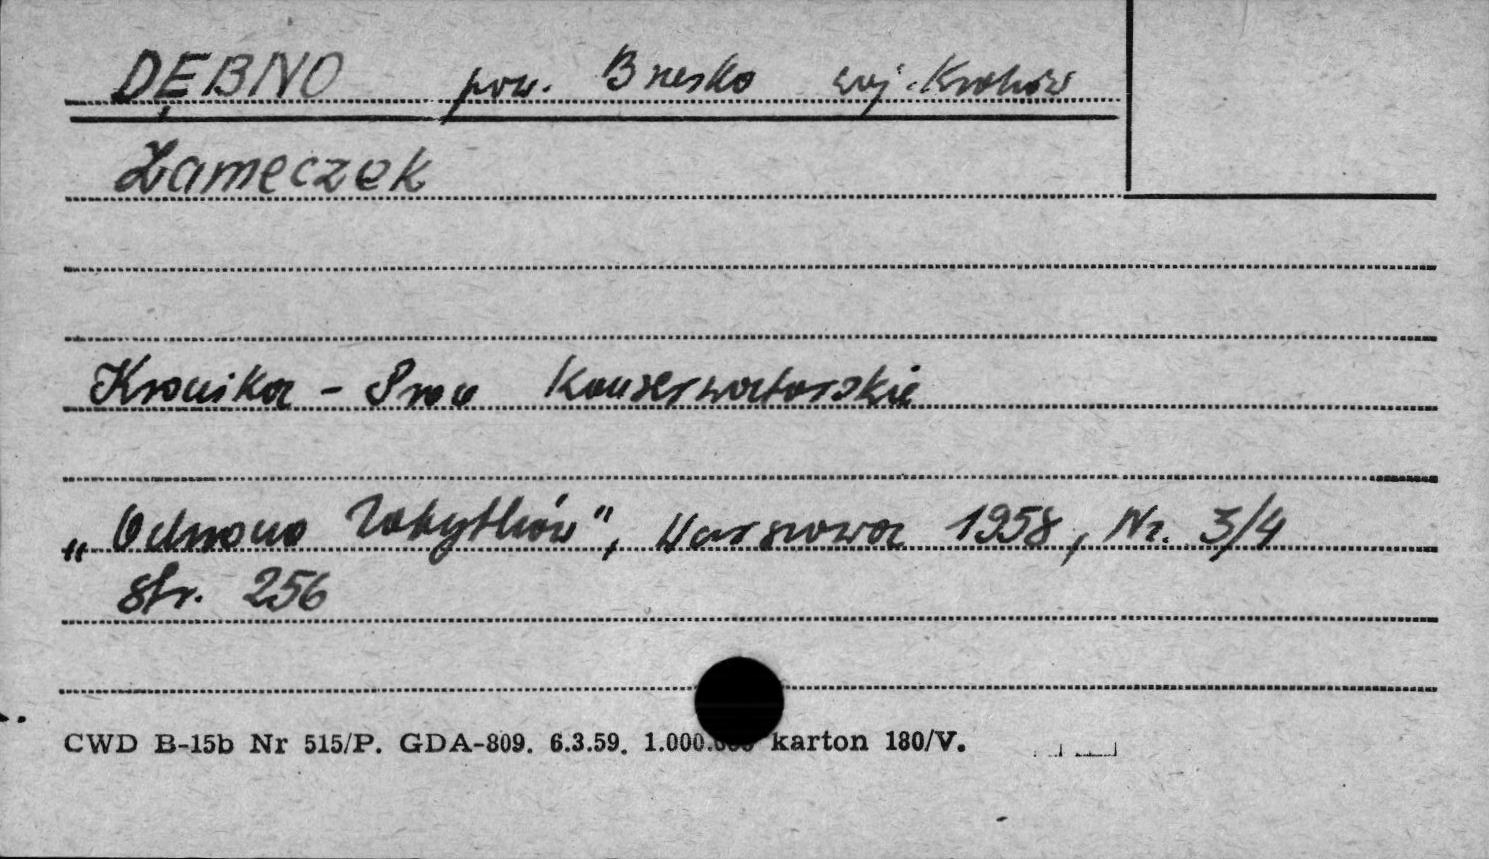 DĘBNO pow. Brzesko woj. Kraków
Zameczek
Kronika - Prac Konserwatorskie
„Ochrona Zabytków", Warszawa 1958, Nr. 3/4
str. 256
CWD B-15b Nr 515/P. GDA-809. 6.3.59. 1.000.000 karton 180/V.